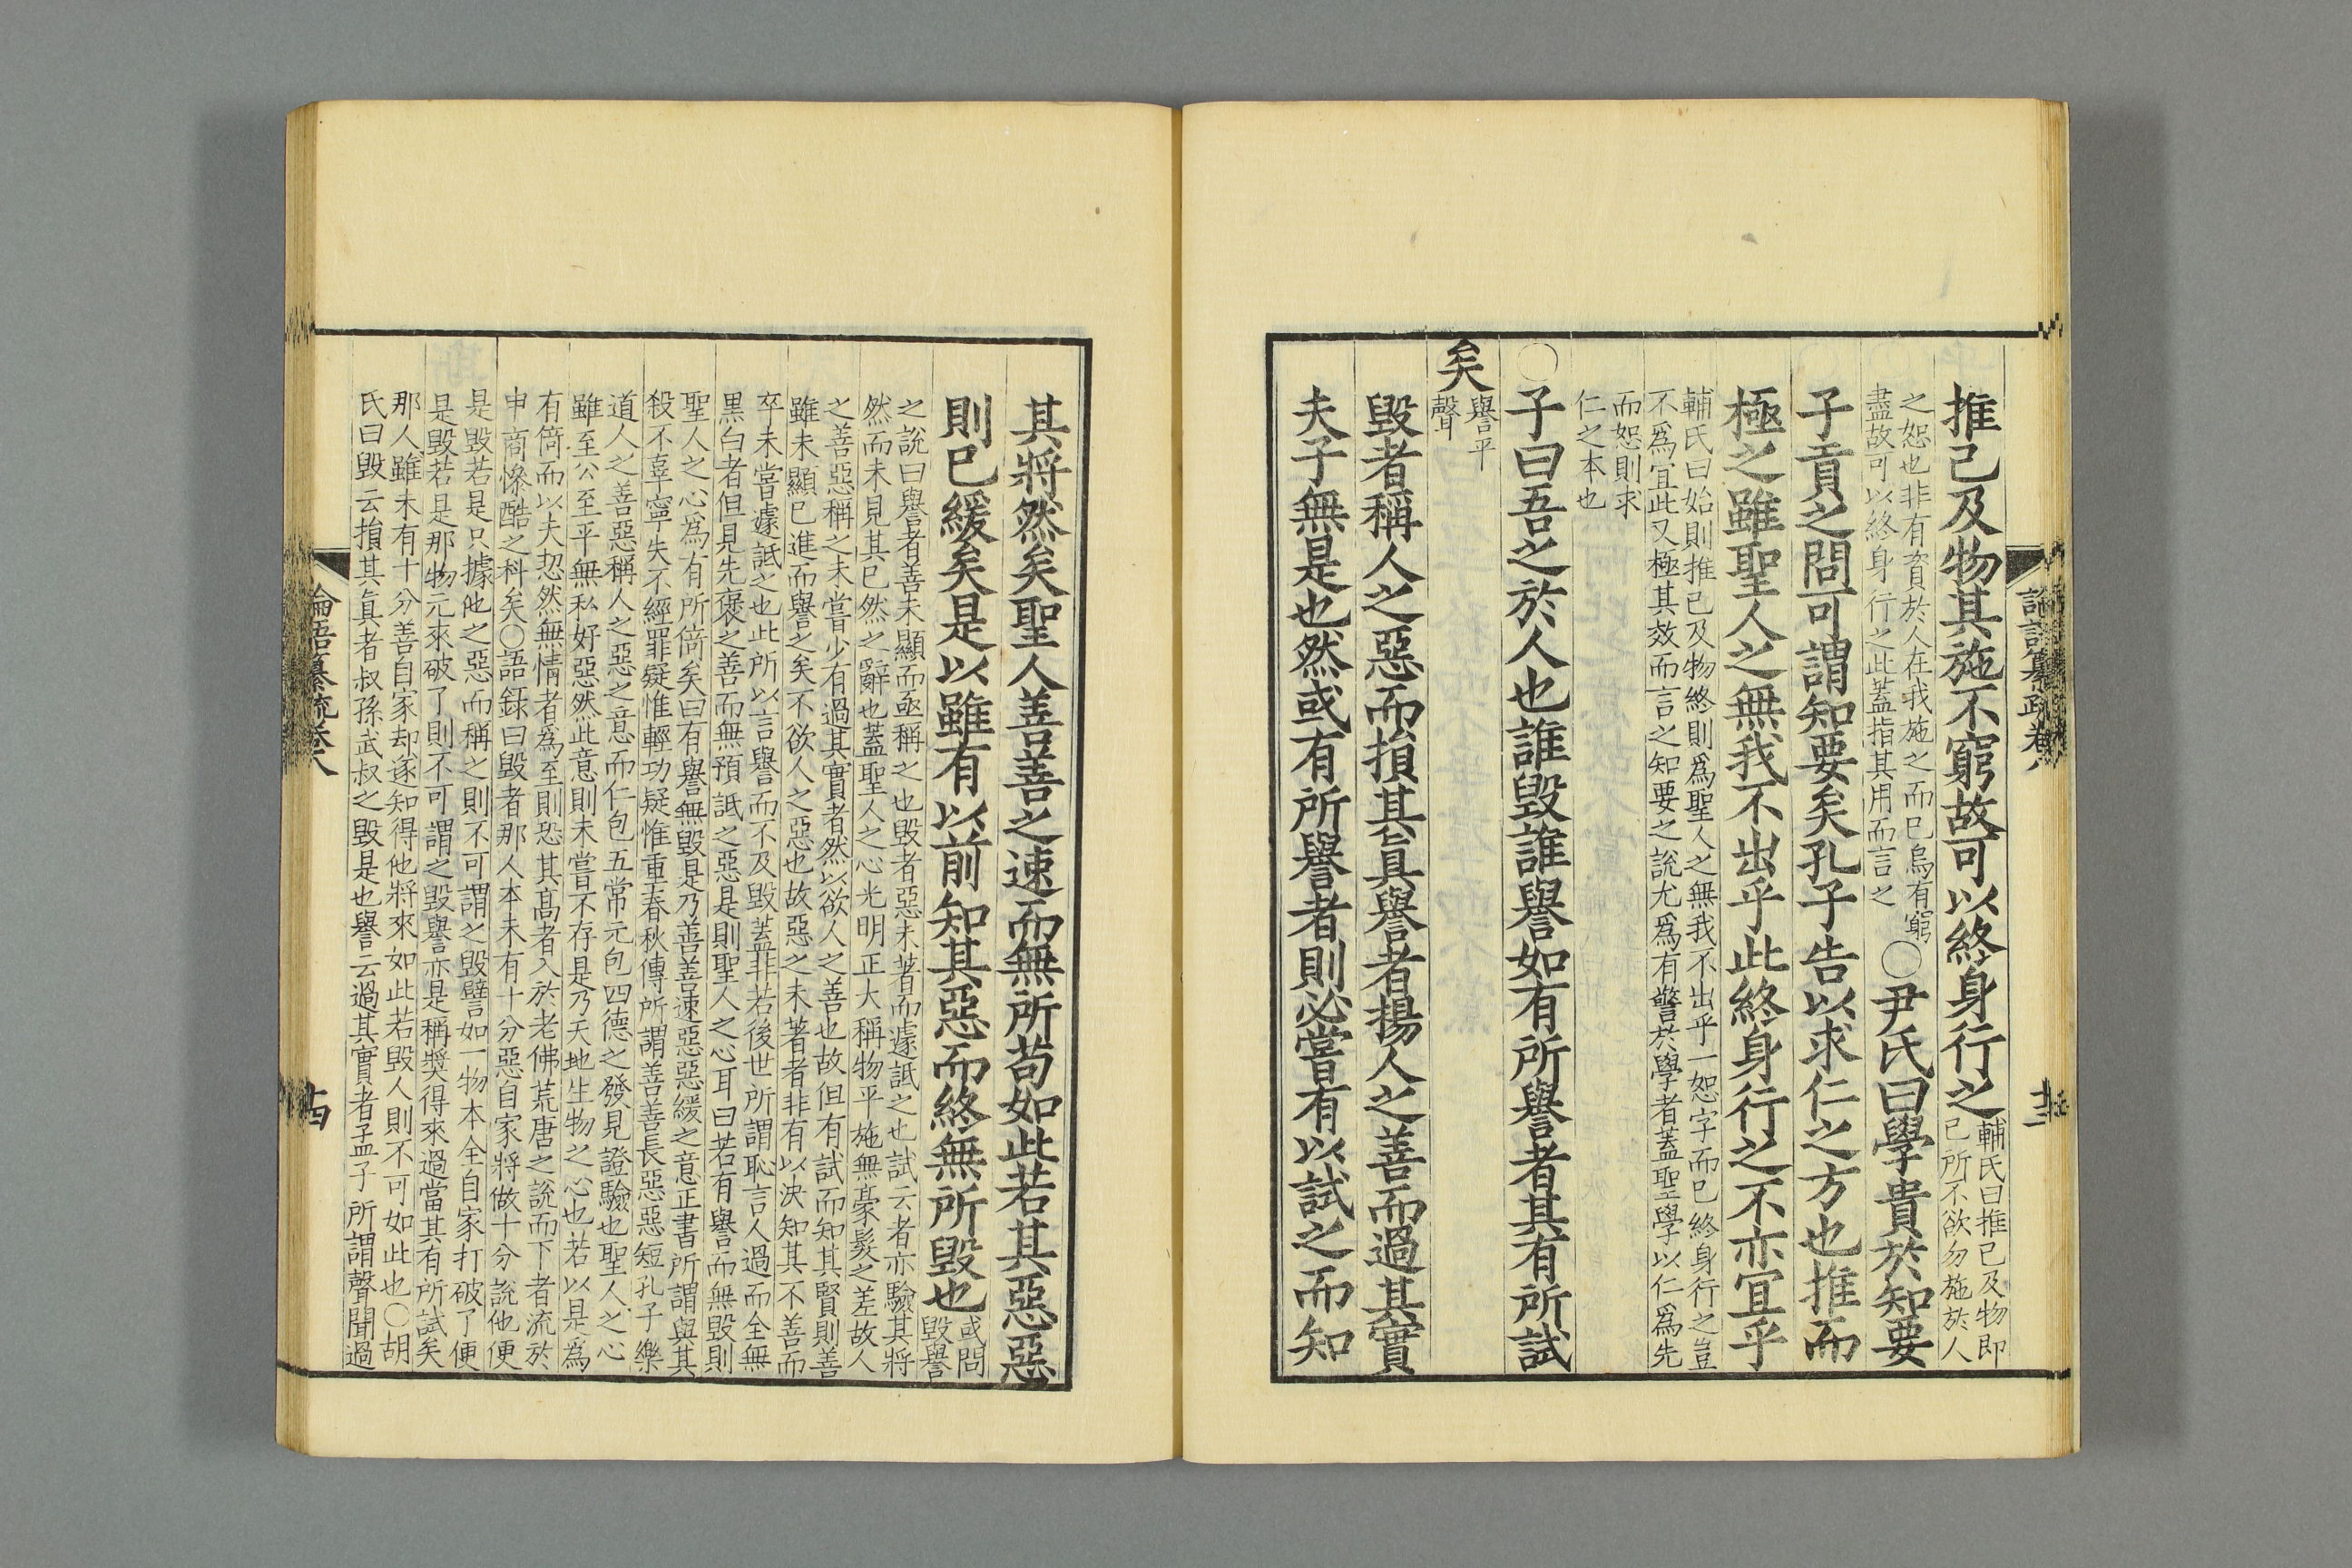 推己及物其施不窮故可以終身行之
輔氏曰推已及物即
已所不欲勿施於人
之恕也非有資於人在我施之而已烏有窮
盡故可以終身行之此蓋指其用而言之
○尹氏曰學貴於知要
子貢之問可謂知要矣孔子告以求仁之方也推而
極之雖聖人之無我不出乎此終身行之不亦宜乎
輔氏曰始則推已及物終則爲聖人之無我不出乎一恕字而已終身行之豈
不爲宜此又極其效而言之知要之說尤爲有警於學者蓋聖學以仁爲先
而恕則求
仁之本也
○子曰吾之於人也誰毀誰譽如有所譽者其有所試
矣
譽平
聲
毀者稱人之惡而損其眞譽者揚人之善而過其實
夫子無是也然或有所譽者則必嘗有以試之而知
其將然矣聖人善善之速而無所苟如此若其惡惡
則已緩矣是以雖有以前知其惡而終無所毀也
或問
毀譽
之說曰譽者善未顯而亟稱之也毀者惡未著而遽詆之也試云者亦驗其將
然而未見其已然之辭也蓋聖人之心光明正大稱物平施無豪髮之差故人
之善惡稱之未嘗少有過其實者然以欲人之善也故但有試而知其賢則善
雖未顯已進而譽之矣不欲人之惡也故惡之未著者非有以決知其不善而
卒未嘗遽詆之也此所以言譽而不及毀蓋非若後世所謂恥言人過而全無
黑白者但見先褒之善而無預詆之惡是則聖人之心耳曰若有譽而無毀則
聖人之心爲有所倚矣曰有譽無毀是乃善善速惡惡緩之意正書所謂與其
殺不辜寧失不經罪疑惟輕功疑惟重春秋傳所謂善善長惡惡短孔子樂
道人之善惡稱人之惡之意而仁包五常元包四德之發見證驗也聖人之心
雖至公至平無私好惡然此意則未嘗不存是乃天地生物之心也若以是爲
有倚而以夫恝然無情者爲至則恐其高者入於老佛荒唐之說而下者流於
申商慘酷之科矣○語録曰毀者那人本未有十分惡自家將做十分說他便
是毀若是只據他之惡而稱之則不可謂之毀譬如一物本全自家打破了便
是毀若是那物元來破了則不可謂之毀譽亦是稱奬得來過當其有所試矣
那人雖未有十分善自家却遂知得他將來如此若毀人則不可如此也○胡
氏曰毀云損其眞者叔孫武叔之毀是也譽云過其實者孟子所謂聲聞過
論語纂疏卷八
十四